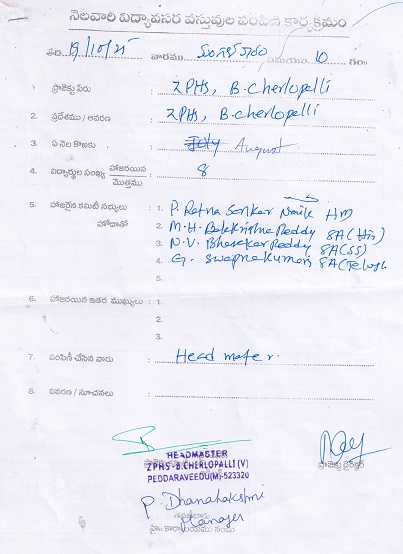 నెలవారి విద్యావసర వస్తువుల పంపిణి కార్యక్రమం
తేది 19/10/25 వారము మంగళవారం సమయం 10 గం
1. ప్రాజెక్టు పేరు : ZPHS, B.Cherlopalli
2. ప్రదేశము / వివరణ : ZPHS, B.Cherlopalli
3. ఏ నెల కొఱకు : July August
4. విద్యార్థుల సంఖ్య హాజరయిన / మొత్తము : 8
5. హాజరైన కమిటీ సభ్యులు : 1. P. Ratna Sankar Naik HM
హోదాతో 2. M.H. Balakrishna Reddy SA(Hin)
3. N.V. Bhaskar Reddy SA(SS)
4. G. Swapna Kumari SA(Telugu
5.
6. హాజరయిన ఇతర ముఖ్యులు : 1.
2.
3.
7. పంపిణీ చేసిన వారు : Head master.
8. వివరణ / సూచనలు :
HEADMASTER
ZPHS-B.CHERLOPALLI (V)
PEDDARAVEEDU(M)-523320
ప్రాజెక్టు డైరెక్టర్
P. Dhanalakshmi
Manager